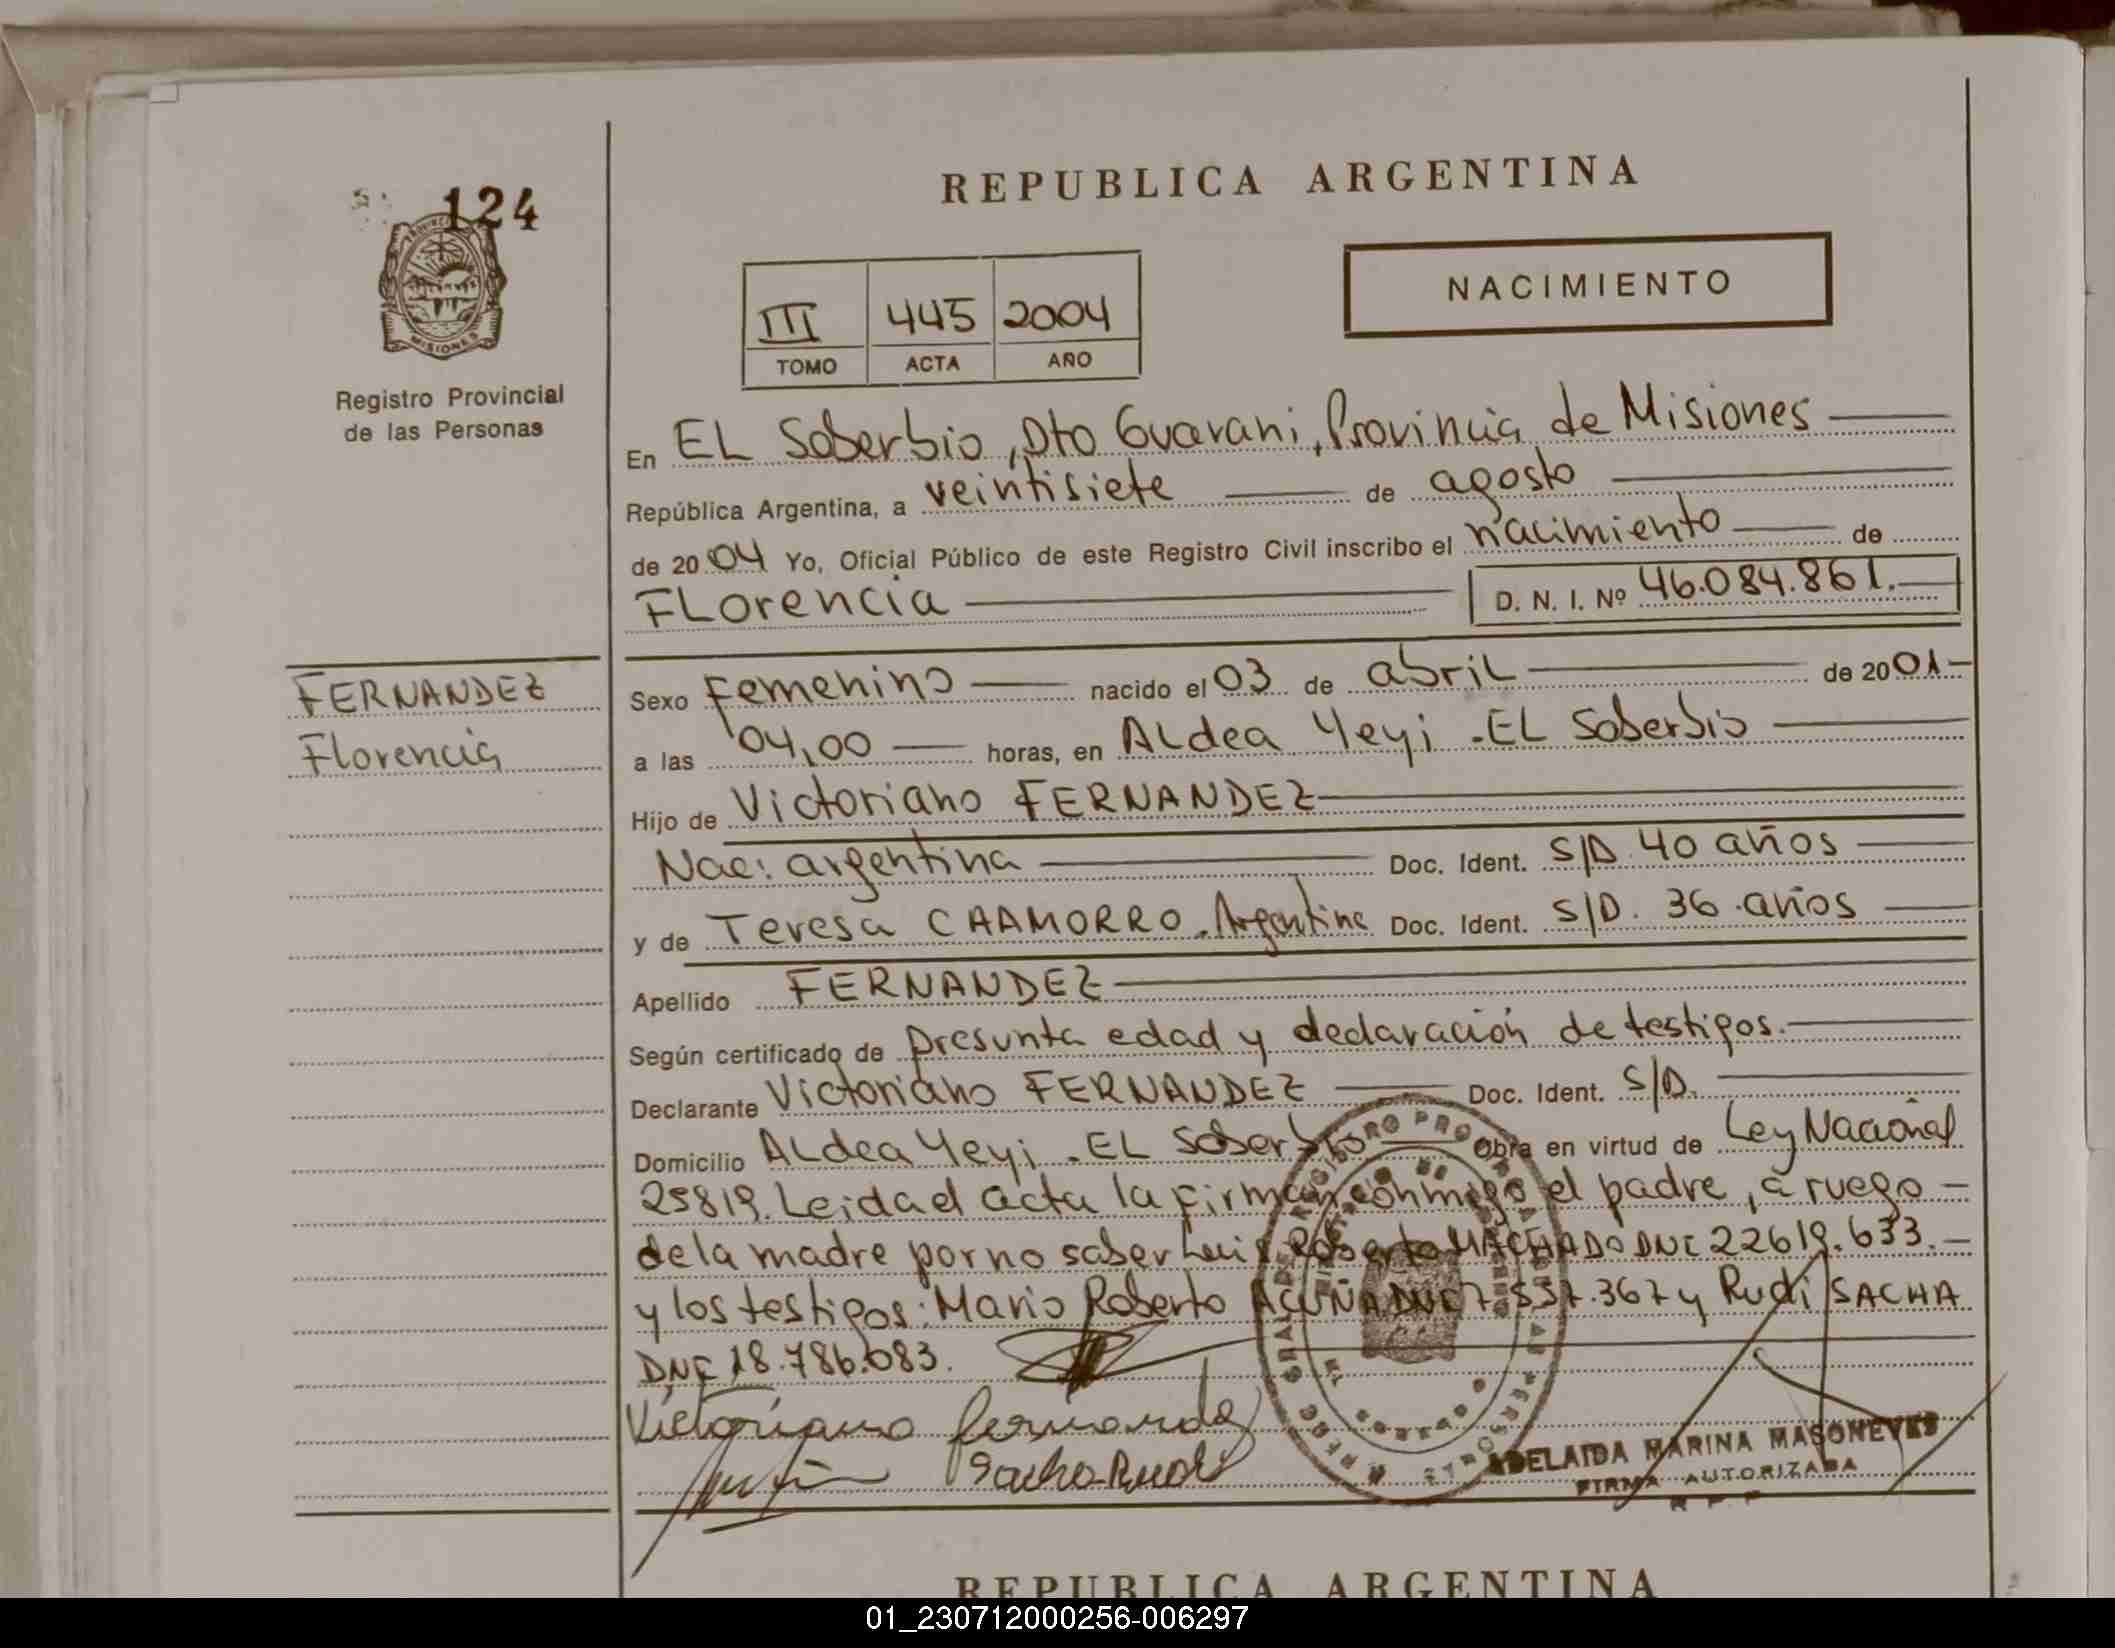 124
PROVINCIA
MISIONES
Registro Provincial
de las Personas
REPUBLICA ARGENTINA
III 445 2004
TOMO ACTA AÑO
NACIMIENTO
En EL Soberbio, Dto Guarani, Provincia de Misiones
República Argentina, a veintisiete de agosto
de 2004 Yo, Oficial Público de este Registro Civil inscribo el nacimiento de
FLorencia D. N. I. Nº 46.084.861.
FERNANDEZ
Florencia
Sexo Femenino nacido el 03 de abriL de 2001
a las 04,00 horas, en ALdea Yeyi - EL Soberbio
Hijo de Victoriano FERNANDEZ
Nac: argentina Doc. Ident. S/D 40 años
y de Teresa CHAMORRO. Argentina Doc. Ident. S/D. 36 años
Apellido FERNANDEZ
Según certificado de presunta edad y declaración de testigos.
Declarante Victoriano FERNANDEZ Doc. Ident. S/D.
Domicilio ALdea Yeyi - EL Soberbio Obra en virtud de Ley Nacional
25819. Leida el acta la firman conmigo el padre, a ruego
de la madre por no saber Luis Roberto MACHADO DNI 22619.633.
y los testigos: Mario Roberto ACUÑA DNI 7.537.367 y Rudi SACHA
DNI 18.786.083.
Victoriano fernandez
Sacha Rudi
ADELAIDA MARINA MASONEVES
FIRMA AUTORIZADA
R P P
REPUBLICA ARGENTINA
01_230712000256-006297